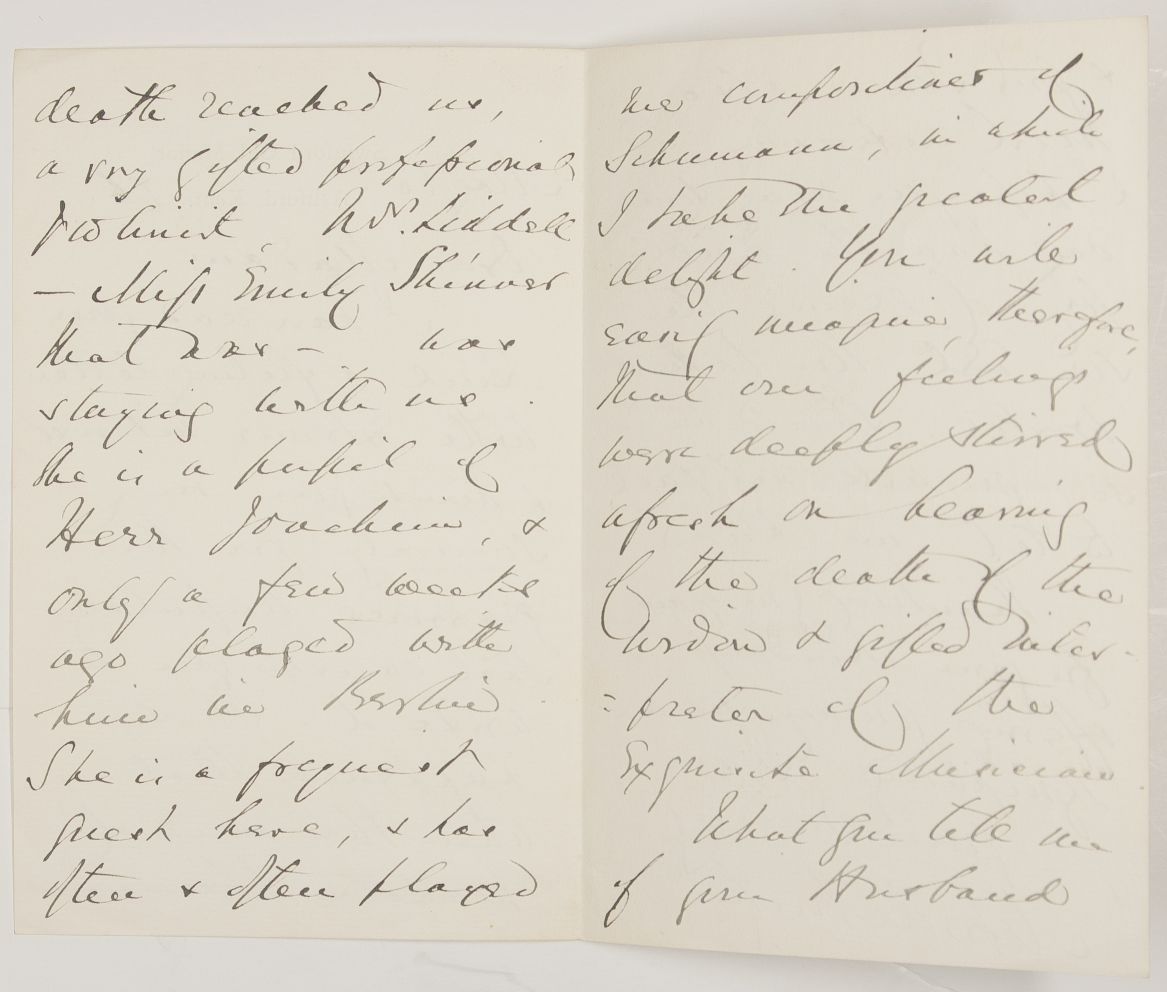 death reached us,
a very gifted professional
violinist, Mrs. Liddell
– Miss Emily Shinner
that was – was
staying with us.
She is a pupil of
Herr Joachim, &
only a few weeks
ago played with
him in Berlin
She is a frequent
guest here, & has
often & often played
me compositions of
Schumann, in which
I take the greatest
delight. You will
easily imagine, therefore,
that our feelings
were deeply stirred
afresh on hearing
of the death of the
widow & gifted inter-
=preter of the
Exquisite Musician
What you tell me
of your Husband